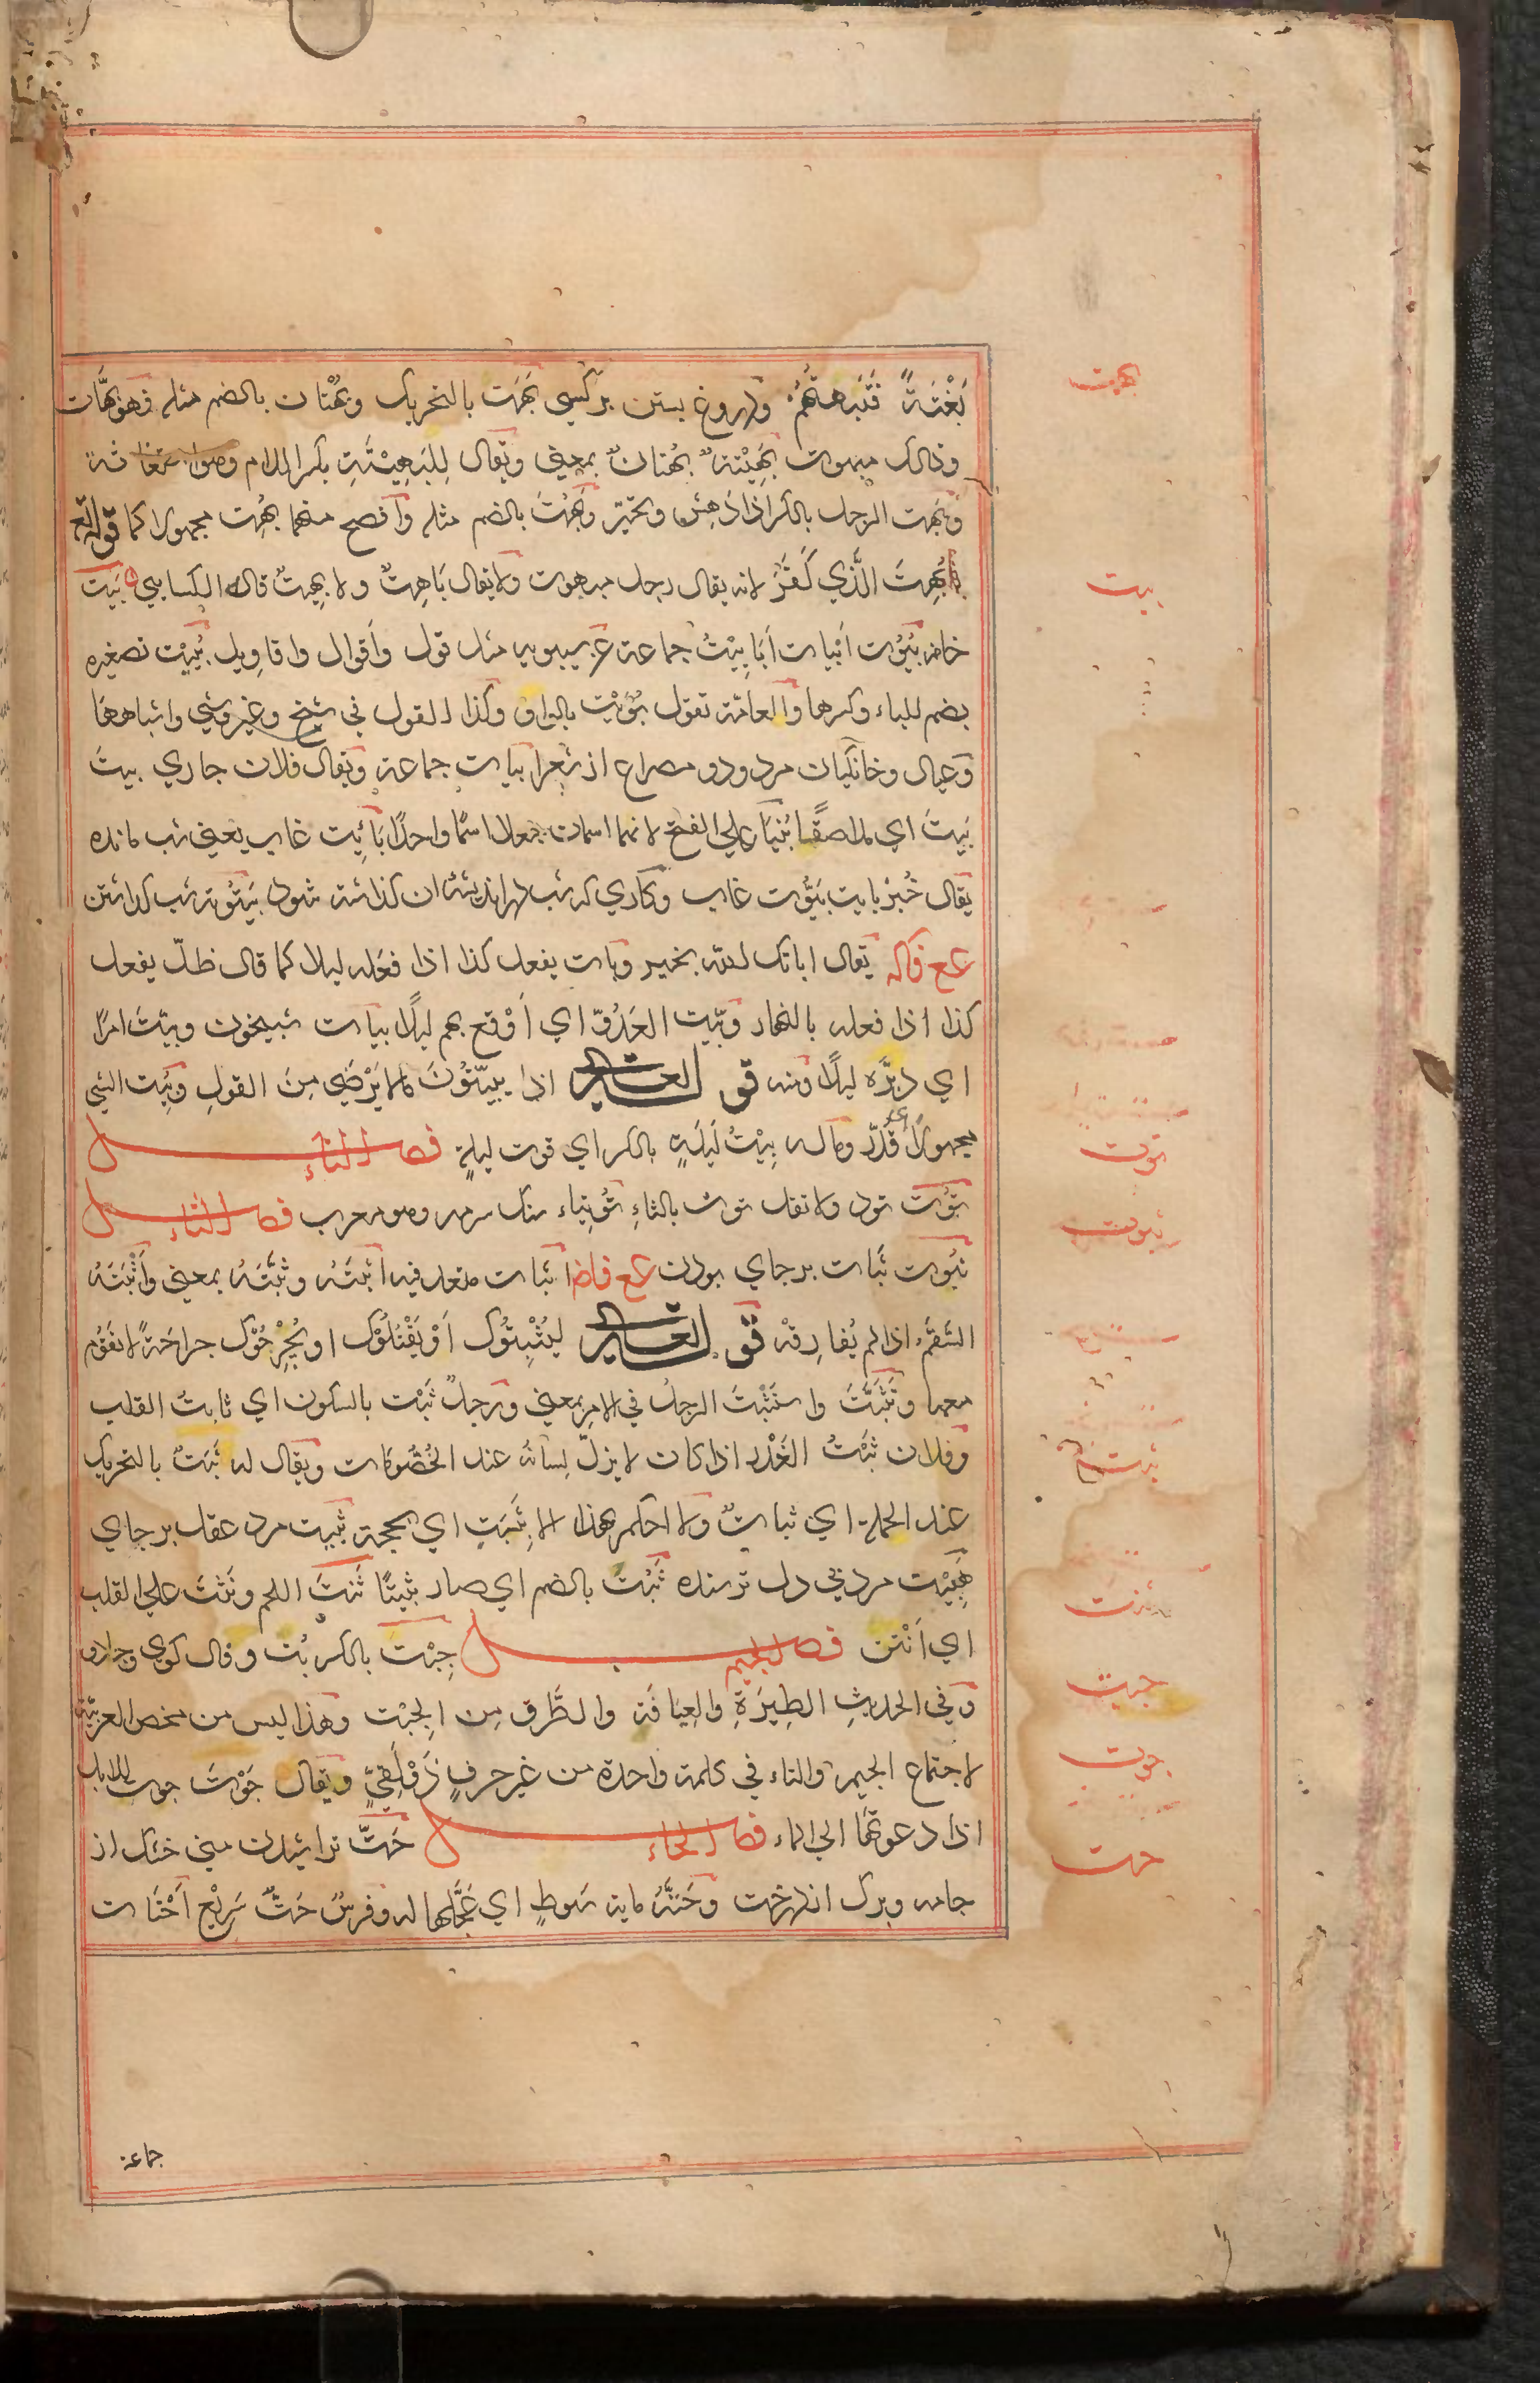 بهت
بَغْتَةً فَتَبْهَتُهُمْ ودروغ بستن بر كسي بَهَت بالتحريك وبُهْتان بالضم مثله فهو بَهَّات
وذالك مبهوت بَهِيْتة بهتان بمعني ويقال لِلبَهِيْتَةِ بكسر اللام وهو استغاثة
وبَهِت الرجل بالكسر اذا دَهِش وتحيّر وبَهُتَ بالضم مثله وأفصح منهما بُهِت مجهولا كما قوله تع
فَبُهِتَ الَّذي كَفَرَ لانه يقال رجل مبهوت ولا يقال بَاهِتٌ ولا بهيتٌ قاله الكسايي بَيْت
بيت
خانه بُيُوت أبيات أَبَايِيْتُ جماعة عن سيبويه مثل قول وأقوال واقاويل بُيَيْت تصغيره
بضم للباء وكسرها والعامة تقول بُوَيْت بالواو وكذا القول في شيخ وعير وشي واشباهها
وعيال وخانگيان مرد ودو مصراع از شعر ابيات جماعة ويقال فلان جاري بيتَ
بَيتَ اي ملاصقًا بُنِيَا علي الفتح لانهما اسمان جعلا اسمًا واحدًا بَائِت غاب يعني شب مانده
يقال خُبز بايت بَيُّوت غاب وكاري كه شب در انديشه ان كذاشته شود بَيْتُوتة شب كذاشتن
ع ع فاكه يقال اباتك الله بخير وبات يفعل كذا اذا فعله ليلا كما قال ظلّ يفعل
كذا اذا فعله بالنهار وبيّت العَدُوّ اي أوقع بهم ليلًا بيات شبيخون وبيّتَ امرًا
اي دبَّره ليلًا ومنه قو العشير اذا يبيّتُوْنَ مالا يَرْضَي مِنَ القولِ وبُيّت الشي
مجهولا اي قُدِّر وماله بِيْتُ لَيلَةٍ بالكسر اي قوت ليلةٍ فصل التاء
توت
تُوت تود ولا تقل توث بالثاءِ تُوتِياء سنك سرمه وهو معرب فصل الثاء
ثبوت
ثُبُوت ثَبات بر جاي بودن ع ع فاضا اثبات متعد فيه اثبَتَهُ وثبَّتَهُ بمعني وأَثْبَتَهُ
السَّقَمُ اذا لم يُفارِقْه قو العشير لِيُثْبِتُوْكَ أوْ يَقْتُلُوْكَ او يُجْرِحُوْك جراحَةً لا تقُوم
معها وتَثَبَّتَ واستَثْبَتَ الرجلُ في الامر بمعني ورَجلٌ ثَبْت بالسكون اي ثابتُ القلب
وفلان ثَبْتُ الغَدَر اذا كان لا يزلّ لِسانُه عند الخُصُومَات ويقال له ثَبَتٌ بالتحريك
عند الحملة اي ثباتٌ ولا احكم بهذا الا بِثَبَتٍ اي بحجة ثَبِيت مرد عقل بر جاي
هَبِيْت مرد بي دل ترسنده ثَبُتَ بالضم اي صار ثبيتًا ثَنِتَ اللحم ونَثِتَ علي القلب
ثنت
اي أنْتن فصل الجيم جِبْت بالكسر بُت وفال كوي وجادو
جبت
وفي الحديثِ الطِيَرَةِ والعِيَافَة والطَّرق مِن الجِبْت وهذا ليس من محض العربيّة
لاجتماع الجيم والتاء في كلمة واحدة من غير حرفٍ ذَوْلَقِيٍّ ويقال جَوْتَ جوت للابل
جوت
اذا دعوتها الي الماء فصل الحاء حَتّ تراشيدن مني خشك از
حت
جامه وبرك از درخت وحَتَّهُ ماية سَوطٍ اي عَجَّلَها له وفرسٌ حَتٌّ سَرِيْع أَحْتَات
جماعة